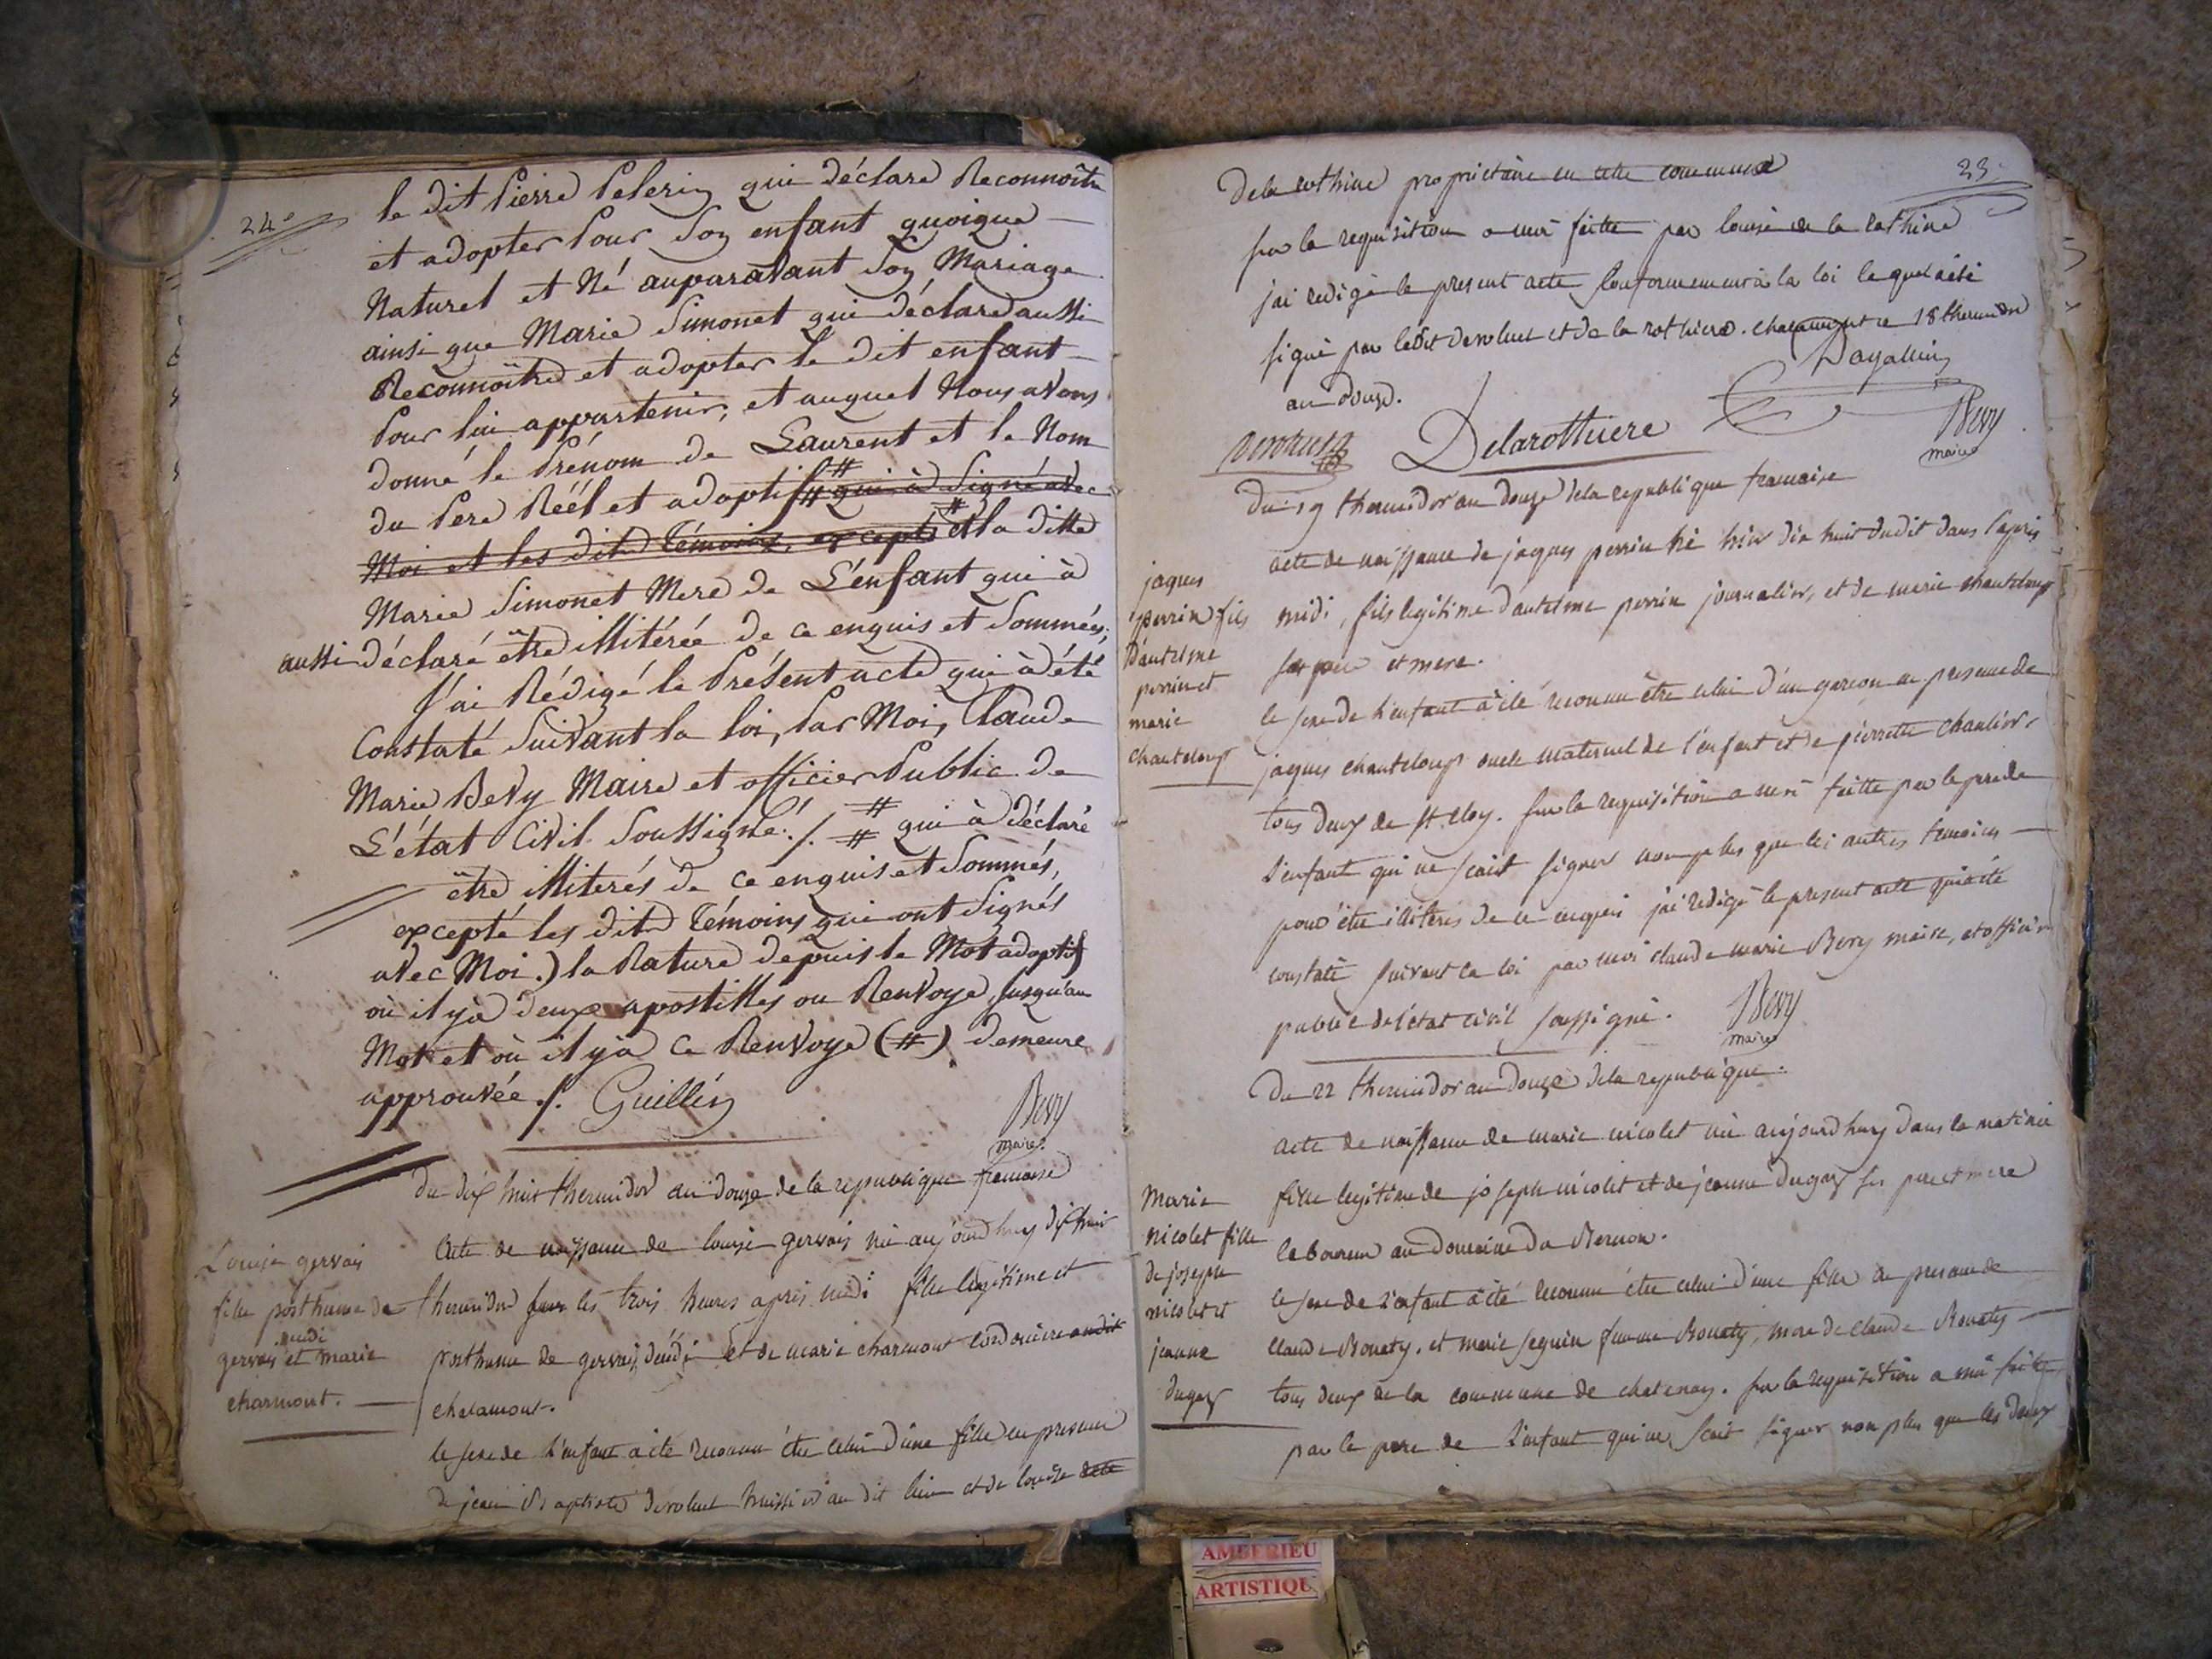 24e
le dit Pierre Pelerin qui déclare Reconnoître
et adopter Pour Son enfant quoique
Naturel et Né auparavant Son Mariage
ainsi que Marie Simonet qui déclare aussi
Reconnoître et adopter le dit enfant
Pour lui appartenir, et auquel Nous avons
donné le Prénom de Laurent et le Nom
du Pere Réel et adoptif # # qui à Signé avec
Moi et les dits Témoins, excepté # et la ditte
Marie Simonet Mere de L'enfant qui à
aussi déclaré être illitérée de ce enquis et Sommées;
J'ai Rédigé le Présent acte qui à été
Constaté Suivant la loi, Par Moi, Claude
Marie Bevy Maire et officier Public de
L'état Civil Soussigné ./. # # qui à déclaré
être illiterés de ce enquis et Sommés,
excepté les dits Témoins qui ont Signés
avec Moi.) la Rature depuis le Mot adoptif
où il y à deux apostilles ou Renvoye Jusqu'au
Mot et où il y à ce Renvoye (#) demeure
approuvée ./. Guillin
Bevy
maire
du dix huit thermidor an douze de la republique francaise
Louise gervais
fille posthume de
gervais et marie
charmont.
acte de naissance de louise gervais né aujourdhuy dix huit
thermidor les trois heures apres midi fille legitime et
posthume de gervais et de marie charmont
chalamont.
le sexe de l'enfant a été reconnu être celui d'une fille en presence
de jean Baptiste devoluet huissier au dit lieu et de louise
23
Dela rothiere propriétaire en cette commune
sur la requisition a moi faitte par louise de la rothiere
j'ai redigé le present acte conformement à la loi le quel a été
signé par ledit devoluet et de la rothiere. chalamont ce 18 thermidor
an douze.
Delarottiere
Bevy
maire
Du 19 thermidor an douze dela republique francaise
jaques
perrin fils
d'antelme
perrin et
marie
chanteloup
acte de naissance de jaques perrin né hier dix huit dudit dans l'apres
midi, fils legitime d'antelme perrin journalier, et de marie chanteloup
ses pere et mere.
le sexe de l'enfant a été reconnu être celui d'un garcon en presence de
jaques chanteloup oncle maternel de l'enfant et de pierrette
tous deux de st eloy. sur la requisition a moi faitte par le pere de
l'enfant qui ne scait signer non plus que les autres temoins
pour être illiteres de ce enquis j'ai redigé le present acte qui a été
constaté suivant la loi par moi claude marie Bevy maire, et officier
public de l'état civil soussigné.
Bevy
maire
Du 22 thermidor an douze dela republique.
Marie
nicolet fille
de joseph
nicolet et
jeanne
dugay
acte de naissance de marie nicolet né aujourdhuy dans la matinée
fille legitime de joseph nicolet et de jeanne dugay ses pere et mere
au domaine du
le sexe de l'enfant a été reconnu être celui d'une fille en presence de
claude Bonaty, et marie seguin femme Bonaty, mere de claude Bonaty
tous deux de la commune de chatenay. sur la requisition a moi faitte
par le pere de l'enfant qui ne scait signer non plus que les deux
AMBERIEU
ARTISTIQU